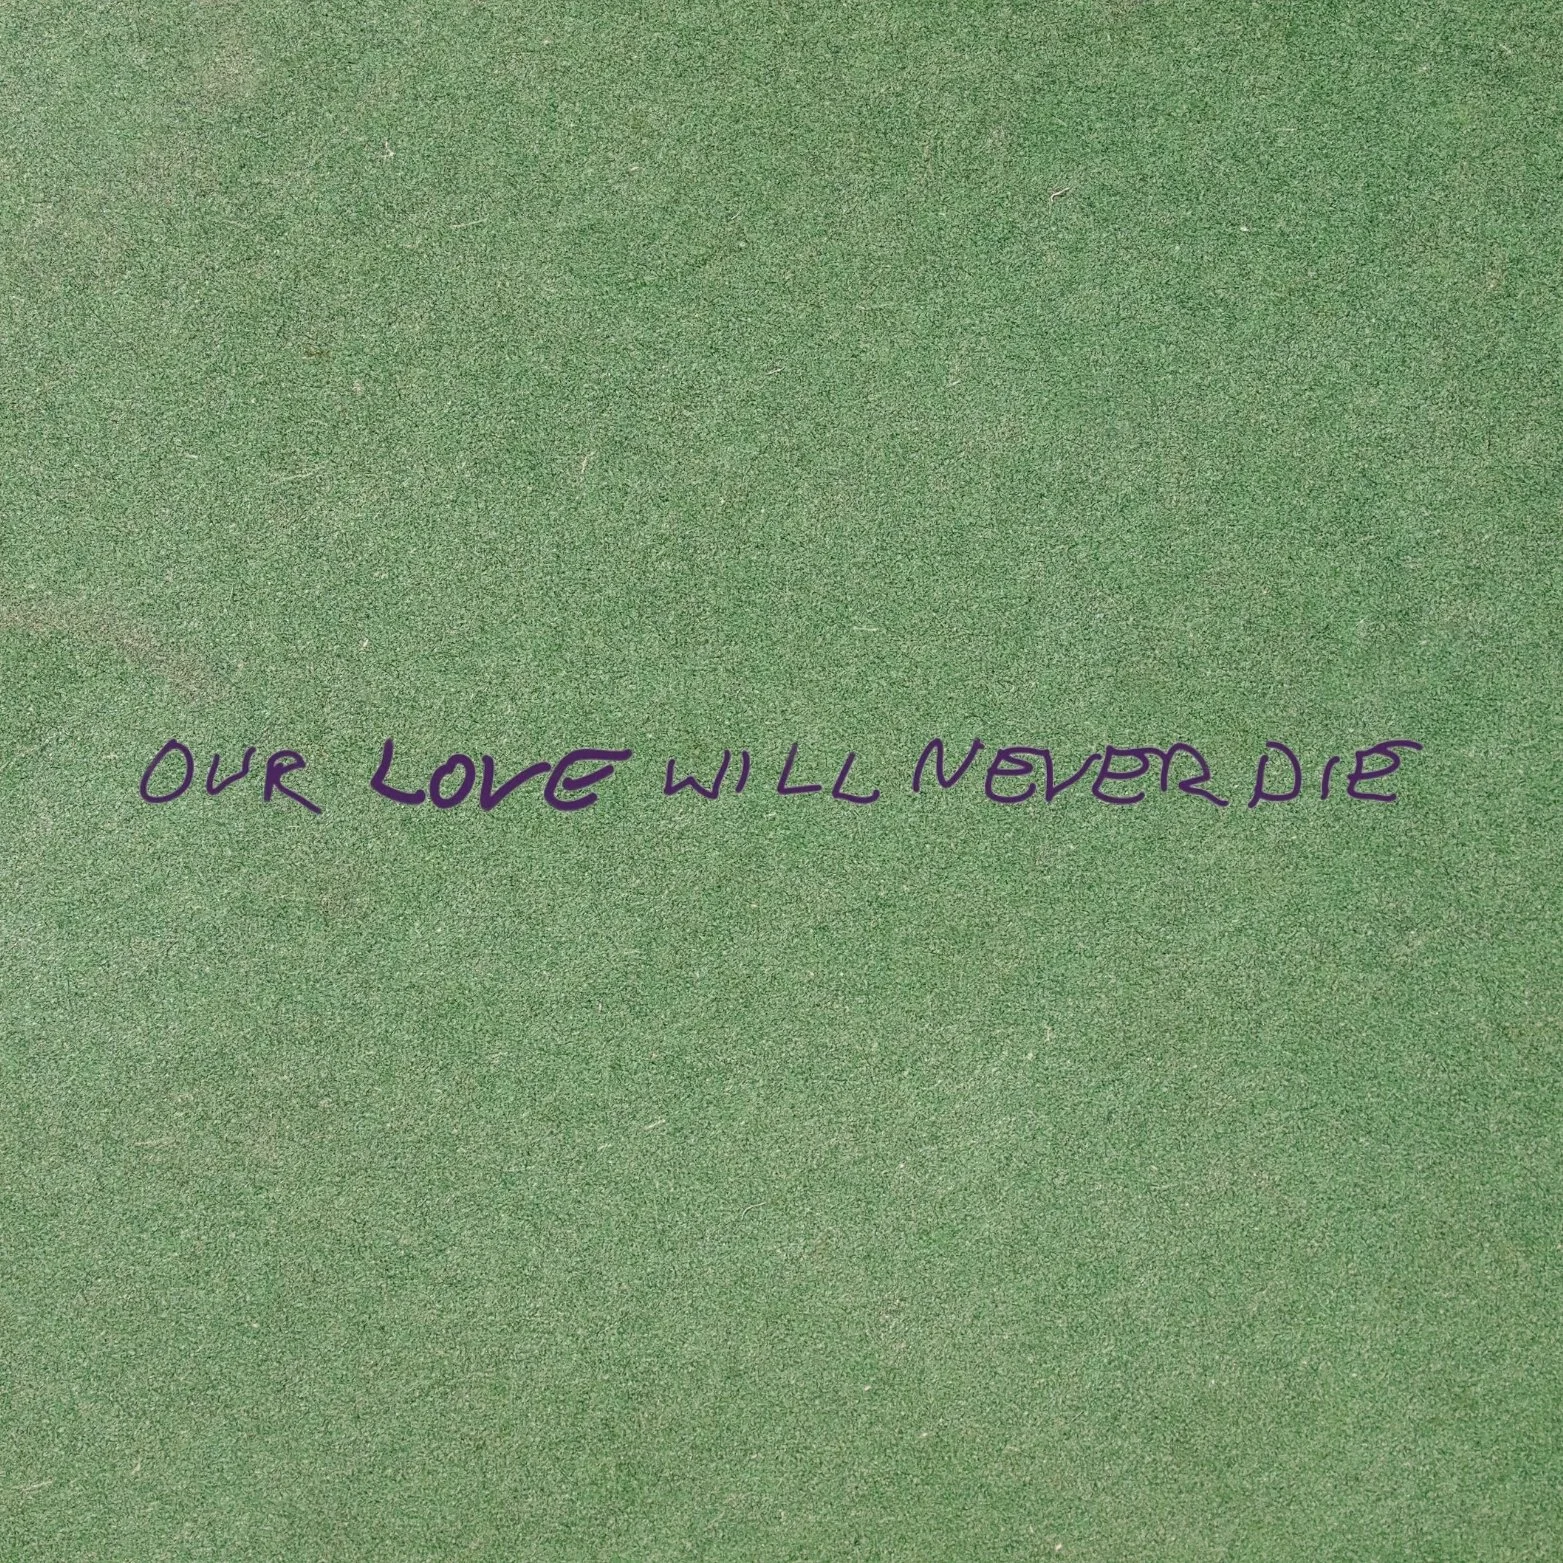 OUR LOVE WILL NEVER DIE